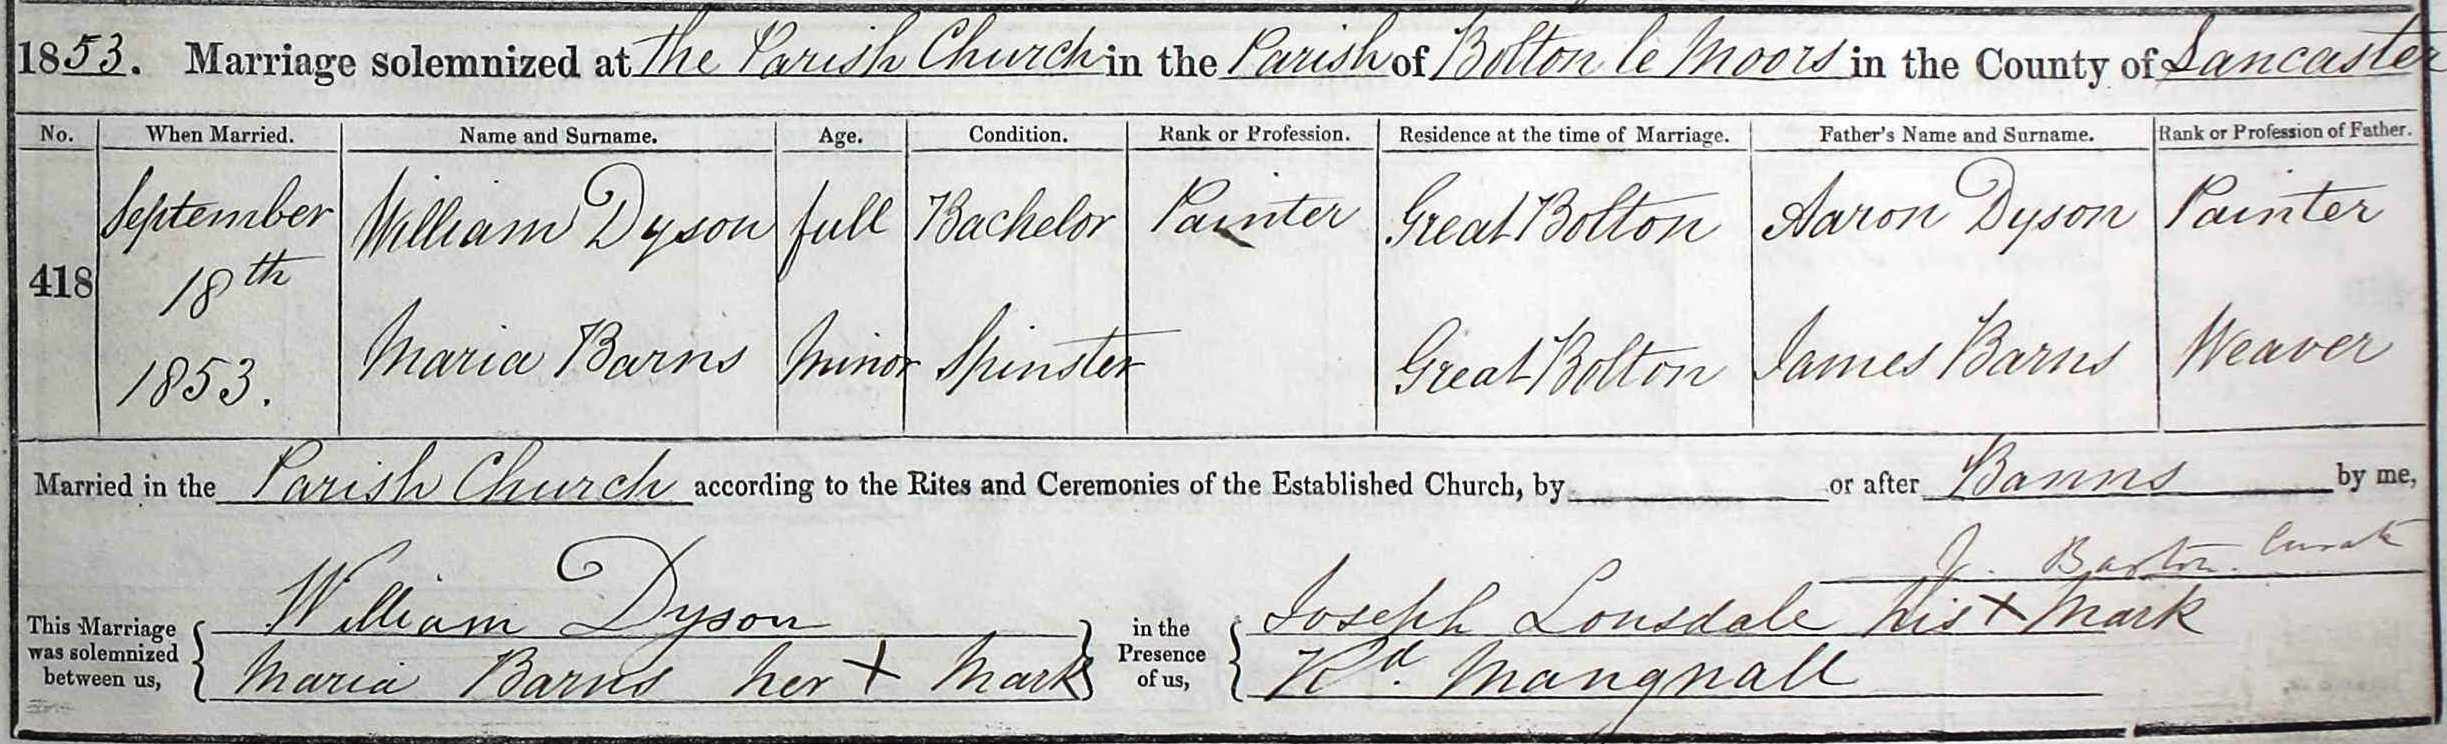 1853. Marriage solemnized at the Parish Church in the Parish of Bolton le Moors in the County of Lancaster
No. When Married. Name and Surname. Age. Condition. Rank or Profession. Residence at the time of Marriage. Father's Name and Surname. Rank or Profession of Father.
September William Dyson full Bachelor Painter Great Bolton Aaron Dyson Painter
418 18th
1853. Maria Barns Minor Spinster Great Bolton James Barns Weaver
Married in the Parish Church according to the Rites and Ceremonies of the Established Church, by or after Banns by me,
J. Barton. Curate
This Marriage was solemnized between us, William Dyson in the Presence of us, Joseph Lonsdale his X Mark
Maria Barns her X Mark Rd. Mangnall